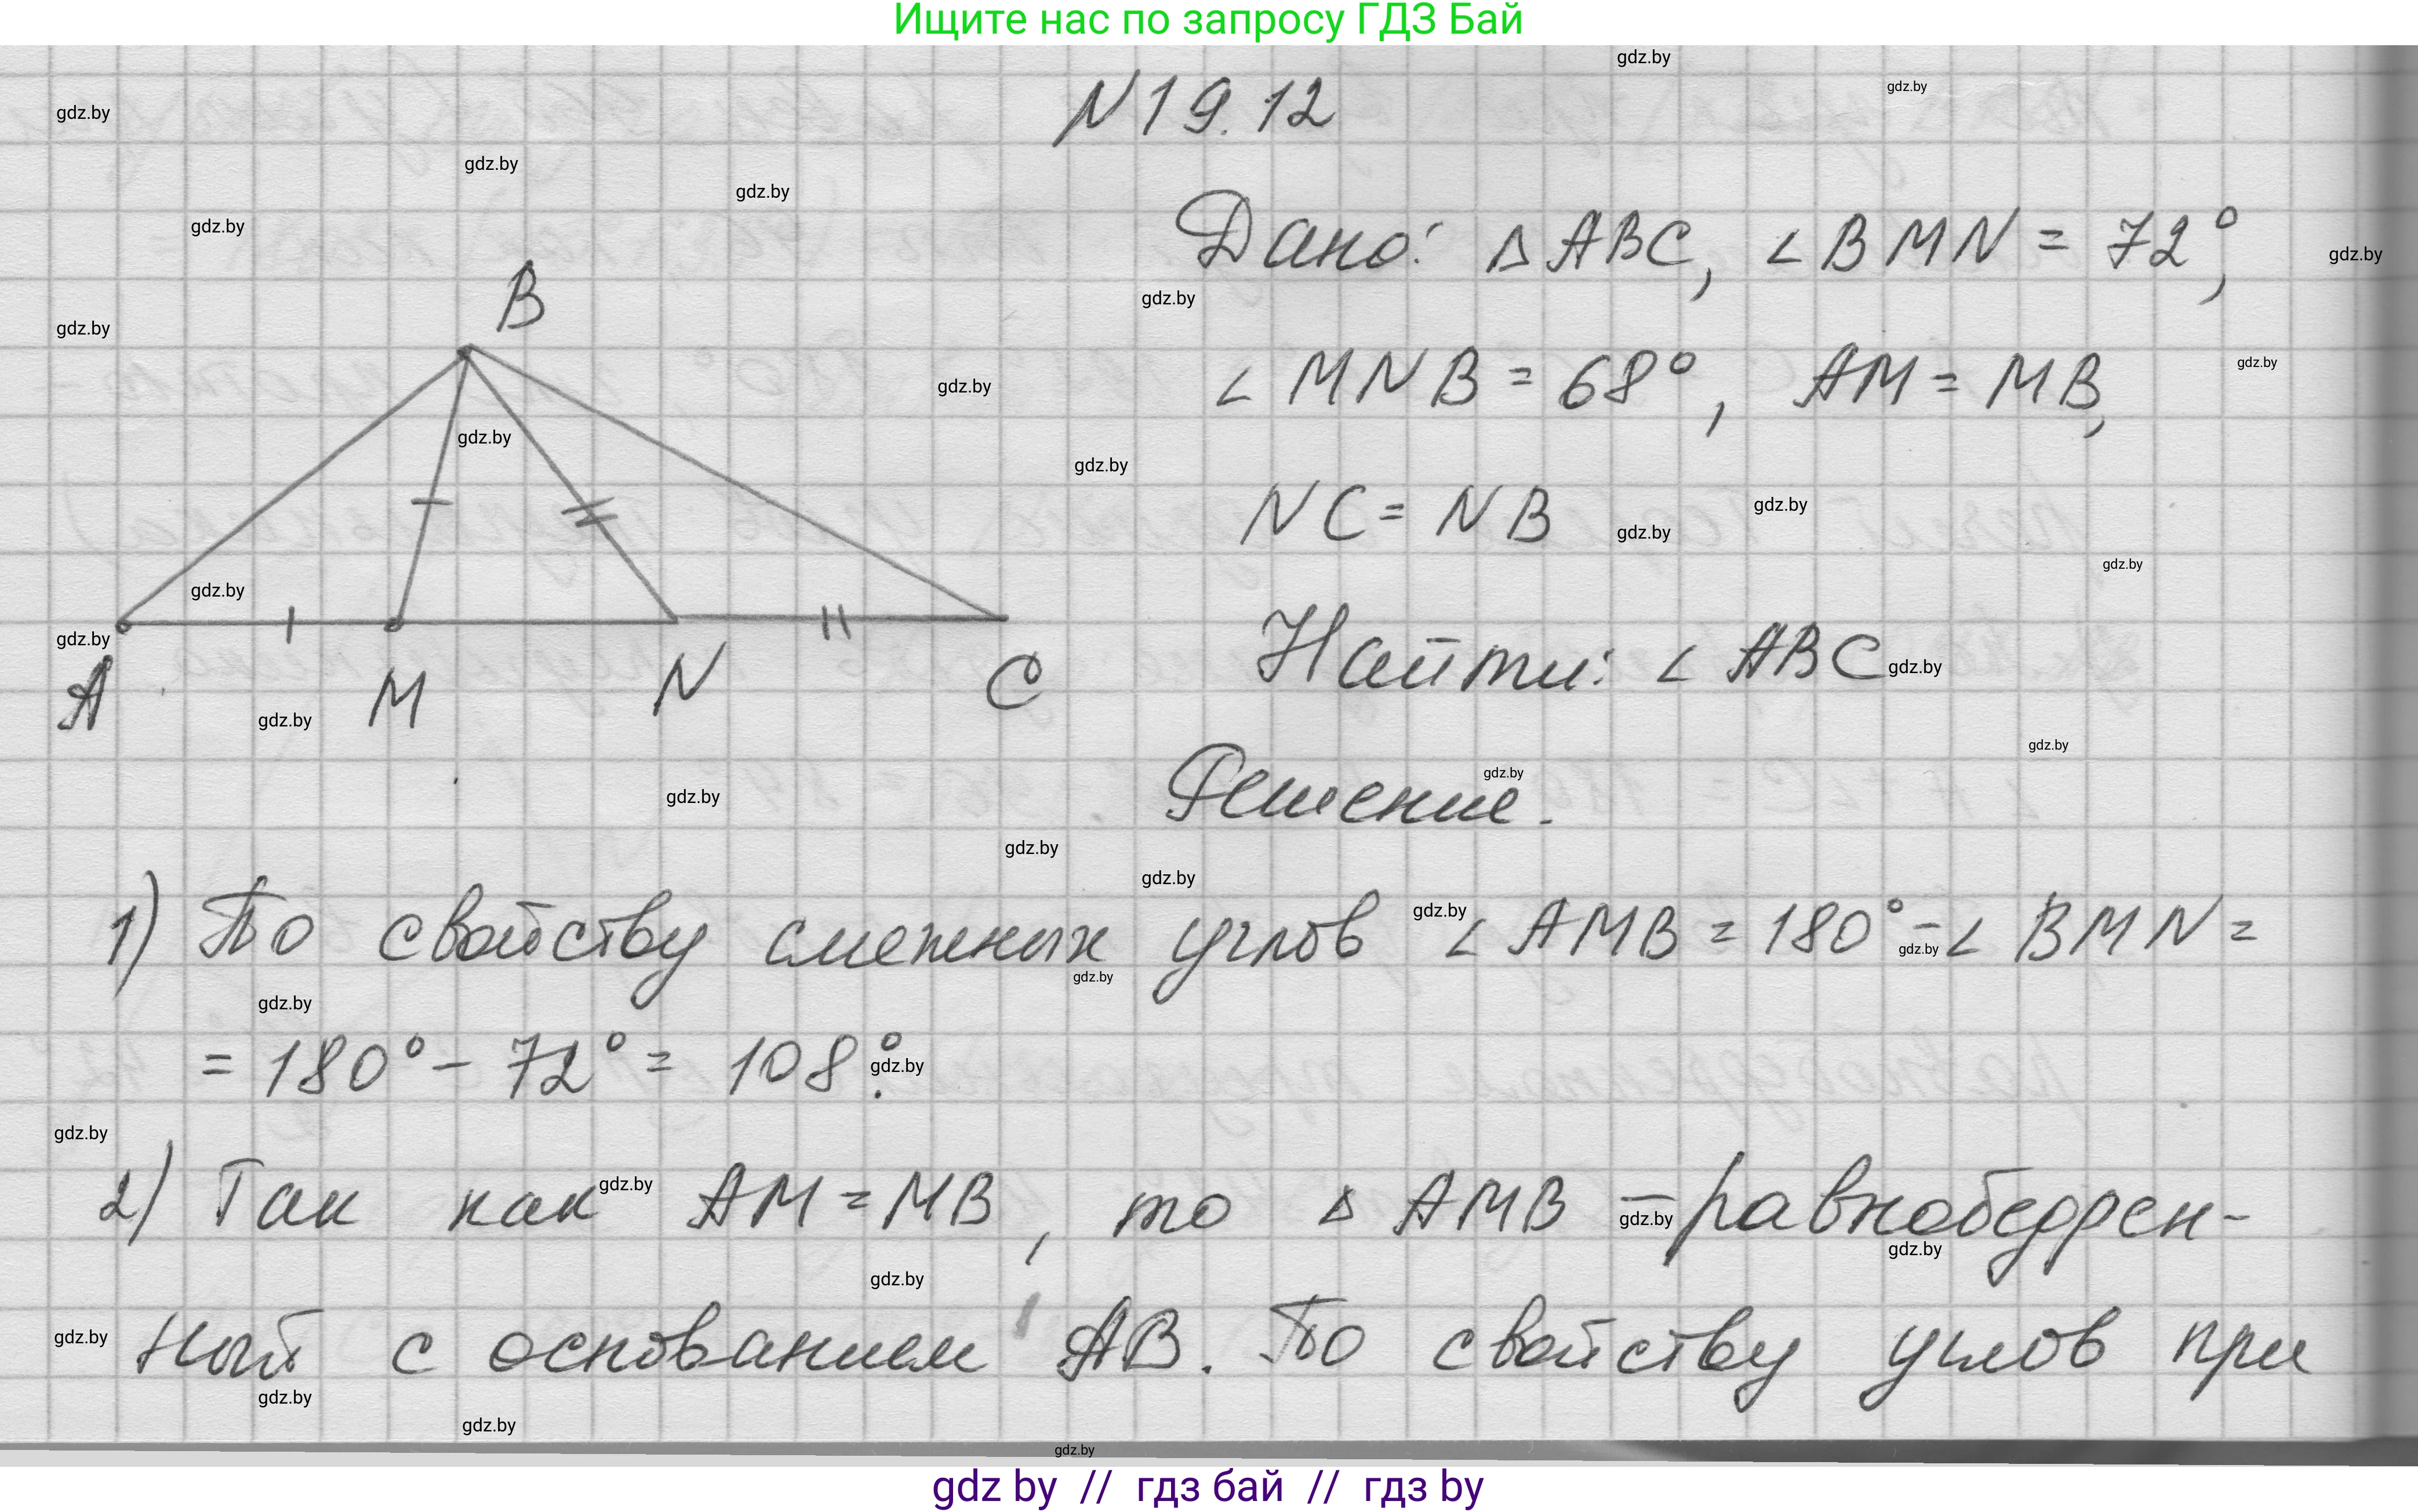 Ищите нас по запросу ГДЗ Бай
N19.12
Дано: △ABC, ∠BMN = 72°,
∠MNB = 68°, AM = MB,
NC = NB
Найти: ∠ABC
B
A M N C
Решение.
1) По свойству смежных углов ∠AMB = 180° - ∠BMN =
= 180° - 72° = 108°.
2) Так как AM = MB, то △AMB – равнобедрен-
ный с основанием AB. По свойству углов при
gdz.by
gdz by // гдз бай // гдз by